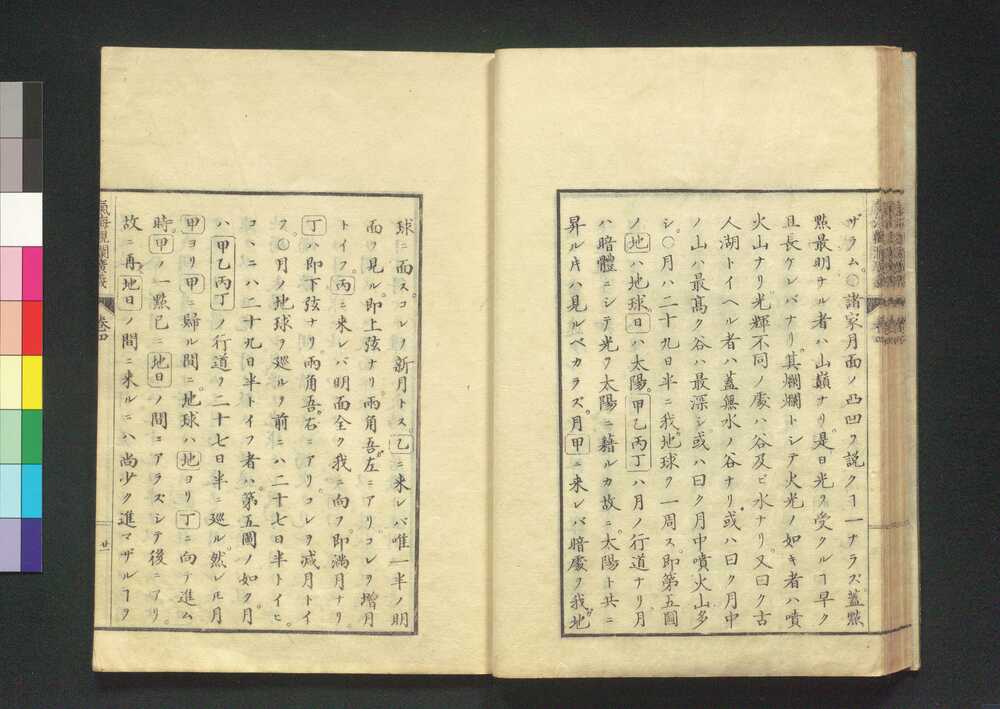 ザラム。○諸家月面ノ凸凹ヲ説クヿ一ナラズ。蓋㸃
㸃最明ナル者ハ山巔ナリ。是日光ヲ受クルヿ早ク
且長ケレバナリ。其爛爛トシテ火光ノ如キ者ハ噴
火山ナリ。光輝不同ノ處ハ谷及ビ水ナリ。又曰ク古
人湖トイヘル者ハ蓋無水ノ谷ナリ。或ハ曰ク月中
ノ山ハ最髙ク谷ハ最深シ。或ハ曰ク月中噴火山多
シ。○月ハ二十九日半ニ我地球ヲ一周ス。即第五圖
ノ地ハ地球。日ハ太陽。甲乙丙丁ハ月ノ行道ナリ。月
ハ暗體ニシテ光ヲ太陽ニ藉ルカ故ニ。太陽ト共ニ
昇ル片ハ見ルベカラズ。月甲ニ来レバ暗處ヲ我地
球ニ面ス。コレノ新月トス。乙ニ来レバ唯一半ノ明
面ヲ見ル。即上弦ナリ。兩角吾左ニアリ。コレヲ増月
トイフ。丙ニ来レバ明面全ク我ニ向フ。即滿月ナリ
丁ハ即下弦ナリ。兩角吾右ニアリ。コレヲ減月トイ
フ。○月ノ地球ヲ巡ルヲ前ニハ二十七日半トイヒ。
コヽニハ二十九日半トイフ者ハ。第五圖ノ如ク月
ハ甲乙丙丁ノ行道ヲ二十七日半ニ巡ル。然レ𪜈月
甲ヨリ甲ニ歸ル間ニ。地球ハ地ヨリ丁ニ向テ進ム
時。甲ノ一㸃已ニ地日ノ間ニアラズシテ後ニアリ。
故ニ再地日ノ間ニ来ルニハ尚少ク進マザルヿヲ
氣海觀瀾廣義
卷四
廿一